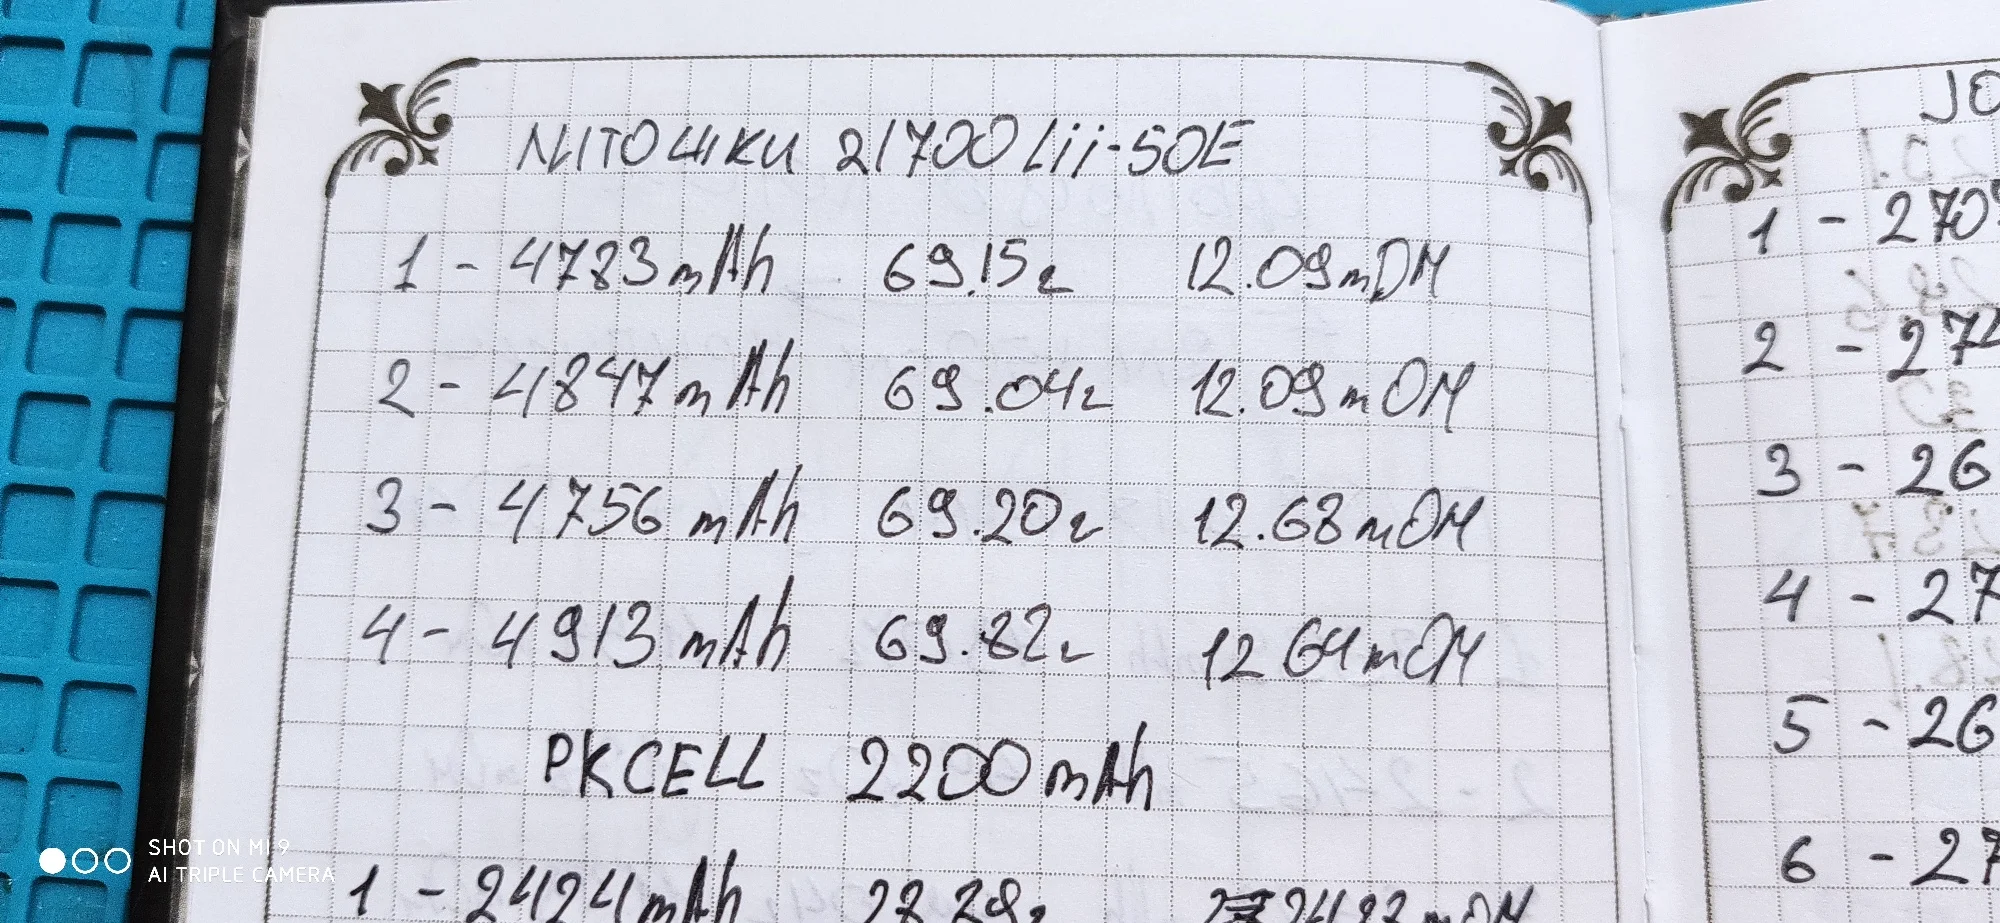 ЛІТОШКИ 21700 Lii-50E
1 - 4783 mAh 69.15г 12.09mOM
2 - 4847 mAh 69.04г 12.09mOM
3 - 4756 mAh 69.20г 12.68mOM
4 - 4913 mAh 69.82г 12 64mOM
PKCELL 2200 mAh
1 - 2424 mAh
JO
1 - 270
2 - 27
3 - 26
4 - 27
5 - 26
6 - 27
SHOT ON MI 9
AI TRIPLE CAMERA